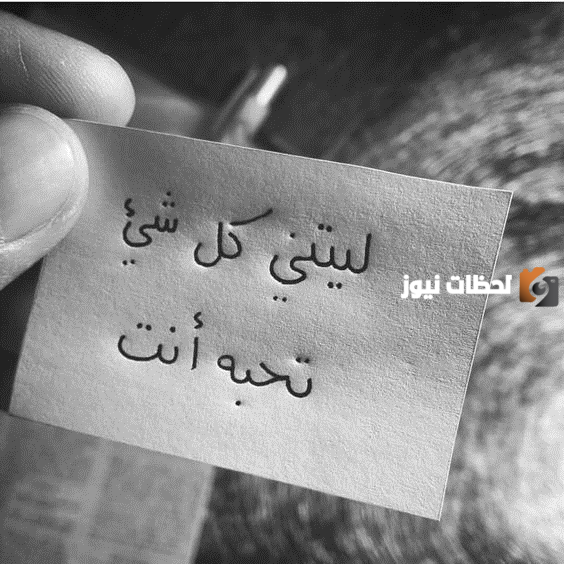 ليتني كل شئ
تحبه أنت
لحظات نيوز